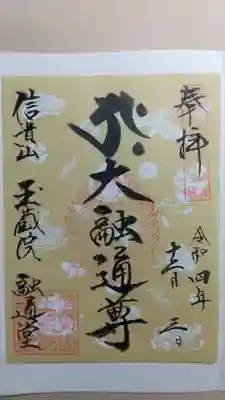 奉拝
令和四年
十二月三日
大融通尊
信貴山 玉蔵院 融通堂